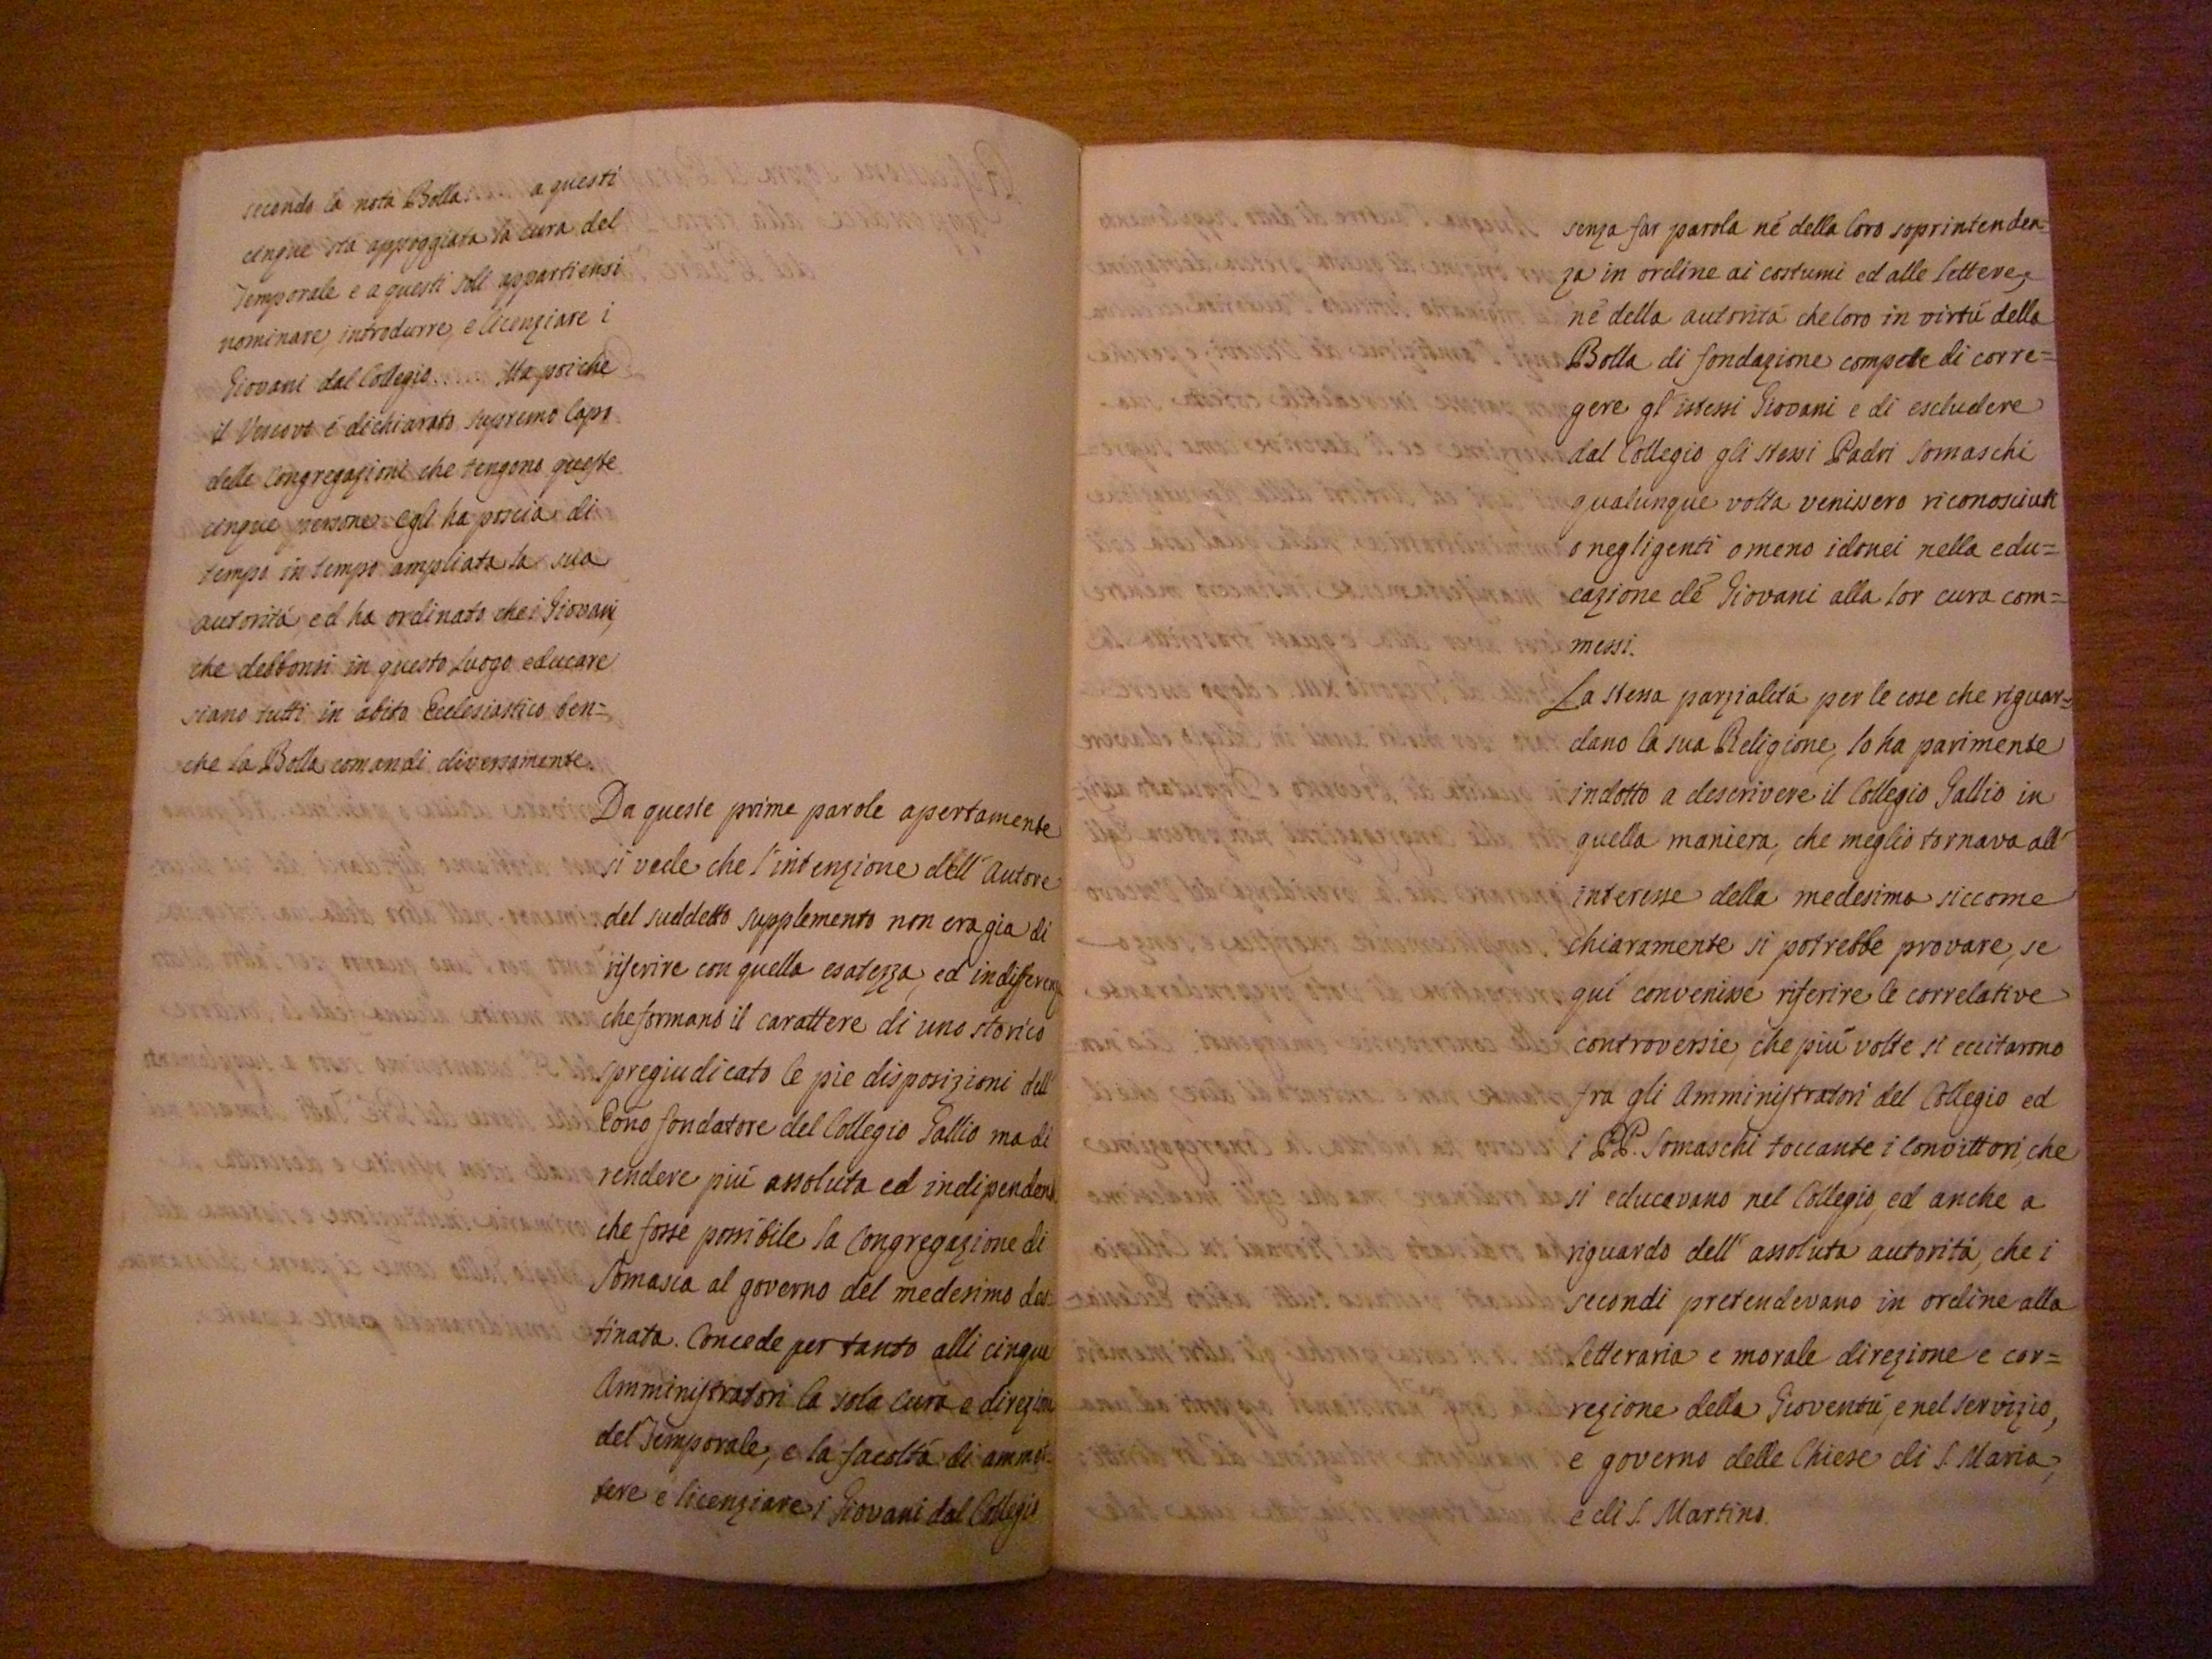 secondo la nota Bolla..... a questi
cinque stà appoggiata la cura del
Temporale e a questi soli appartiensi
nominare, introdurre, e licenziare i
Giovani dal Collegio..... Ma poiche
il Vescovo é dichiarato supremo Capo
delle Congregazioni che tengono queste
cinque persone egli ha poscia di
tempo in tempo ampliata la sua
autoritá, ed ha ordinato che i Giovani,
che debbonsi in questo luogo educare
siano tutti in abito Ecclesiastico ben=
che la Bolla comandi diversamente.
Da queste prime parole apertamente
si vede che l'intenzione dell'Autore
del suddetto supplemento non era gia di
riferire con quella esatezza, ed indifferenza
che formano il carattere di uno storico
spregiudicato le pie disposizioni dell'
Emo fondatore del Collegio Gallio ma di
rendere piú assoluta ed indipendente
che fosse possibile la Congregazione di
Somasca al governo del medesimo des=
tinata. Concede per tanto alli cinque
Amministratori la sola cura e direzione
del Temporale, e la facoltá di ammet=
tere e licenziare i Giovani dal Collegio
senza far parola né della loro soprintenden=
za in ordine ai costumi ed alle lettere,
né della autoritá che loro in virtú della
Bolla di fondazione compete di corre=
gere gl'istessi Giovani e di escludere
dal Collegio gli stessi Padri Somaschi
qualunque volta venissero riconosciuti
o negligenti o meno idonei nella edu=
cazione de' Giovani alla lor cura com=
messi.
La stessa parzialitá per le cose che riguar=
dano la sua Religione, lo ha parimente
indotto a descrivere il Collegio Gallio in
quella maniera, che meglio tornava all'
interesse della medesima siccome
chiaramente si potrebbe provare, se
quí convenisse riferire le correlative
controversie, che piú volte si eccitarono
fra gli Amministratori del Collegio ed
i PP. Somaschi toccante i Convittori, che
si educavano nel Collegio, ed anche a
riguardo dell'assoluta autoritá, che i
secondi pretendevano in ordine alla
letteraria e morale direzione e cor=
rezione della Gioventú, e nel servizio,
e governo delle Chiese di S. Maria,
e di S. Martino.